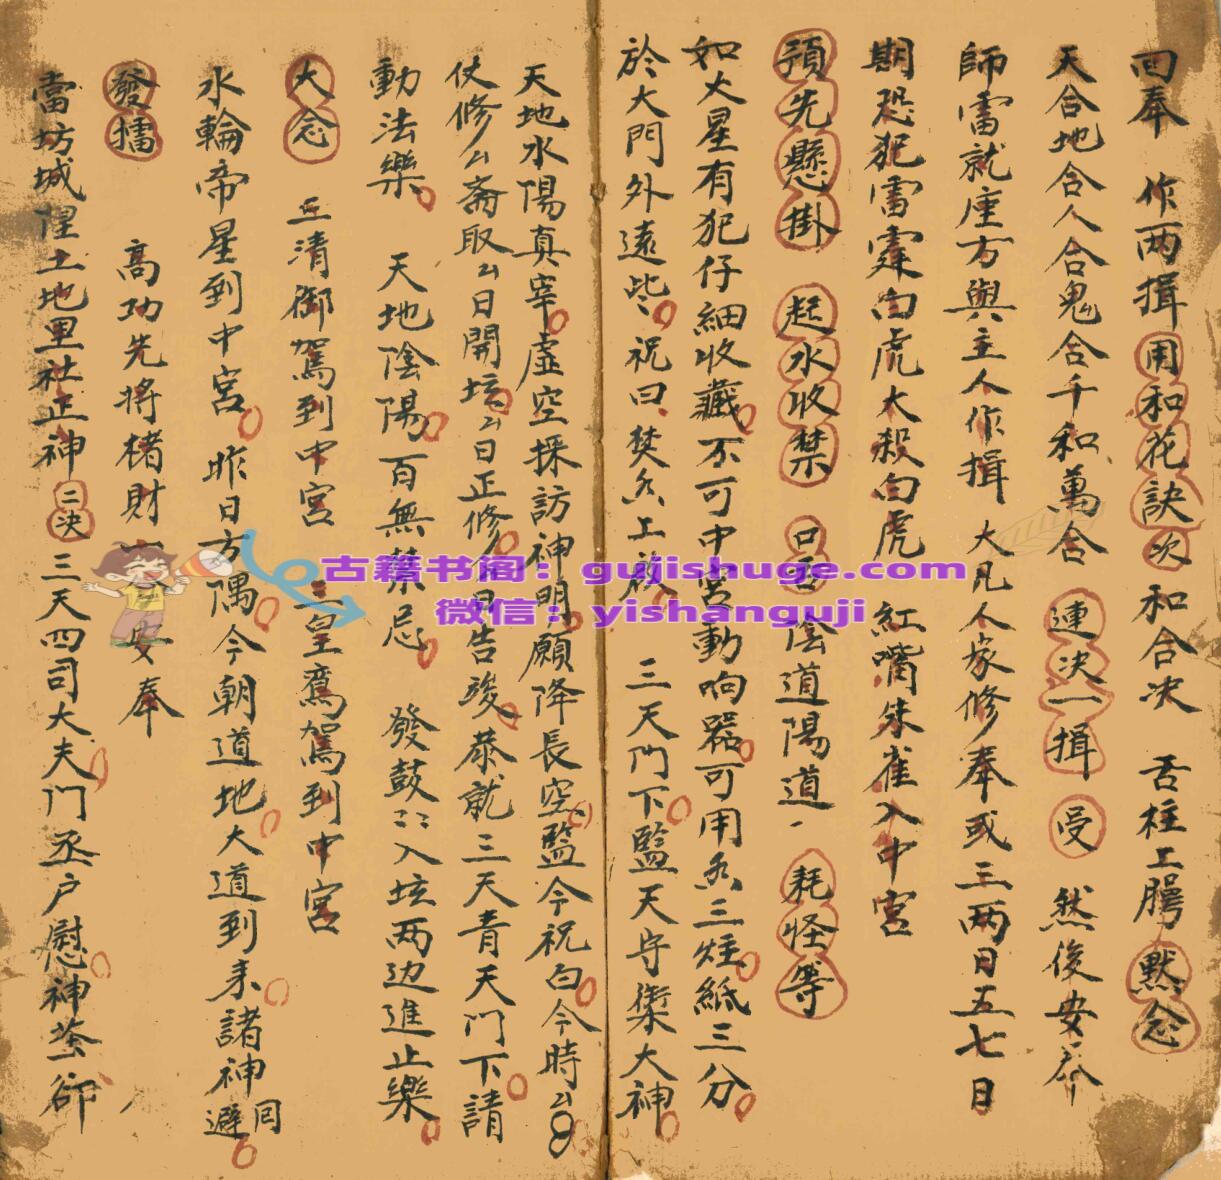 回奉 作两揖用和花訣次和合决 舌柱上腭默念
天合地合人合鬼合千和萬合 連决一揖 受 然後安奉
師雷就座方與主人作揖 大凡人家修奉或三两日五七日
期恐犯雷霆白虎大殺白虎 紅嘴朱雀入中宮
預先懸掛 起水收禁 口 陰道陽道 耗怪等
如火星有犯仔細收藏不可中宮動响器可用香三炷紙三分
於大門外遠些祝曰焚香上啟 三天門下監天守衛大神
天地水陽真宰虛空採訪神明願降長空監今祝白今時厶
伏修厶斋取厶日開坛厶日正修 日告竣恭就三天青天門下請
動法樂 天地陰陽百無禁忌 發鼓 入坛两边進止樂
大念 三清御駕到中宮 三皇鸞駕到中宮
水輪帝星到中宮昨日方隅今朝道地大道到来諸神回避
發擂 高功先將楮財 安奉
當坊城隍土地里社正神二决三天四司大夫門丞户慰神荼
古籍书阁：gujishuge.com
微信：yishanguji